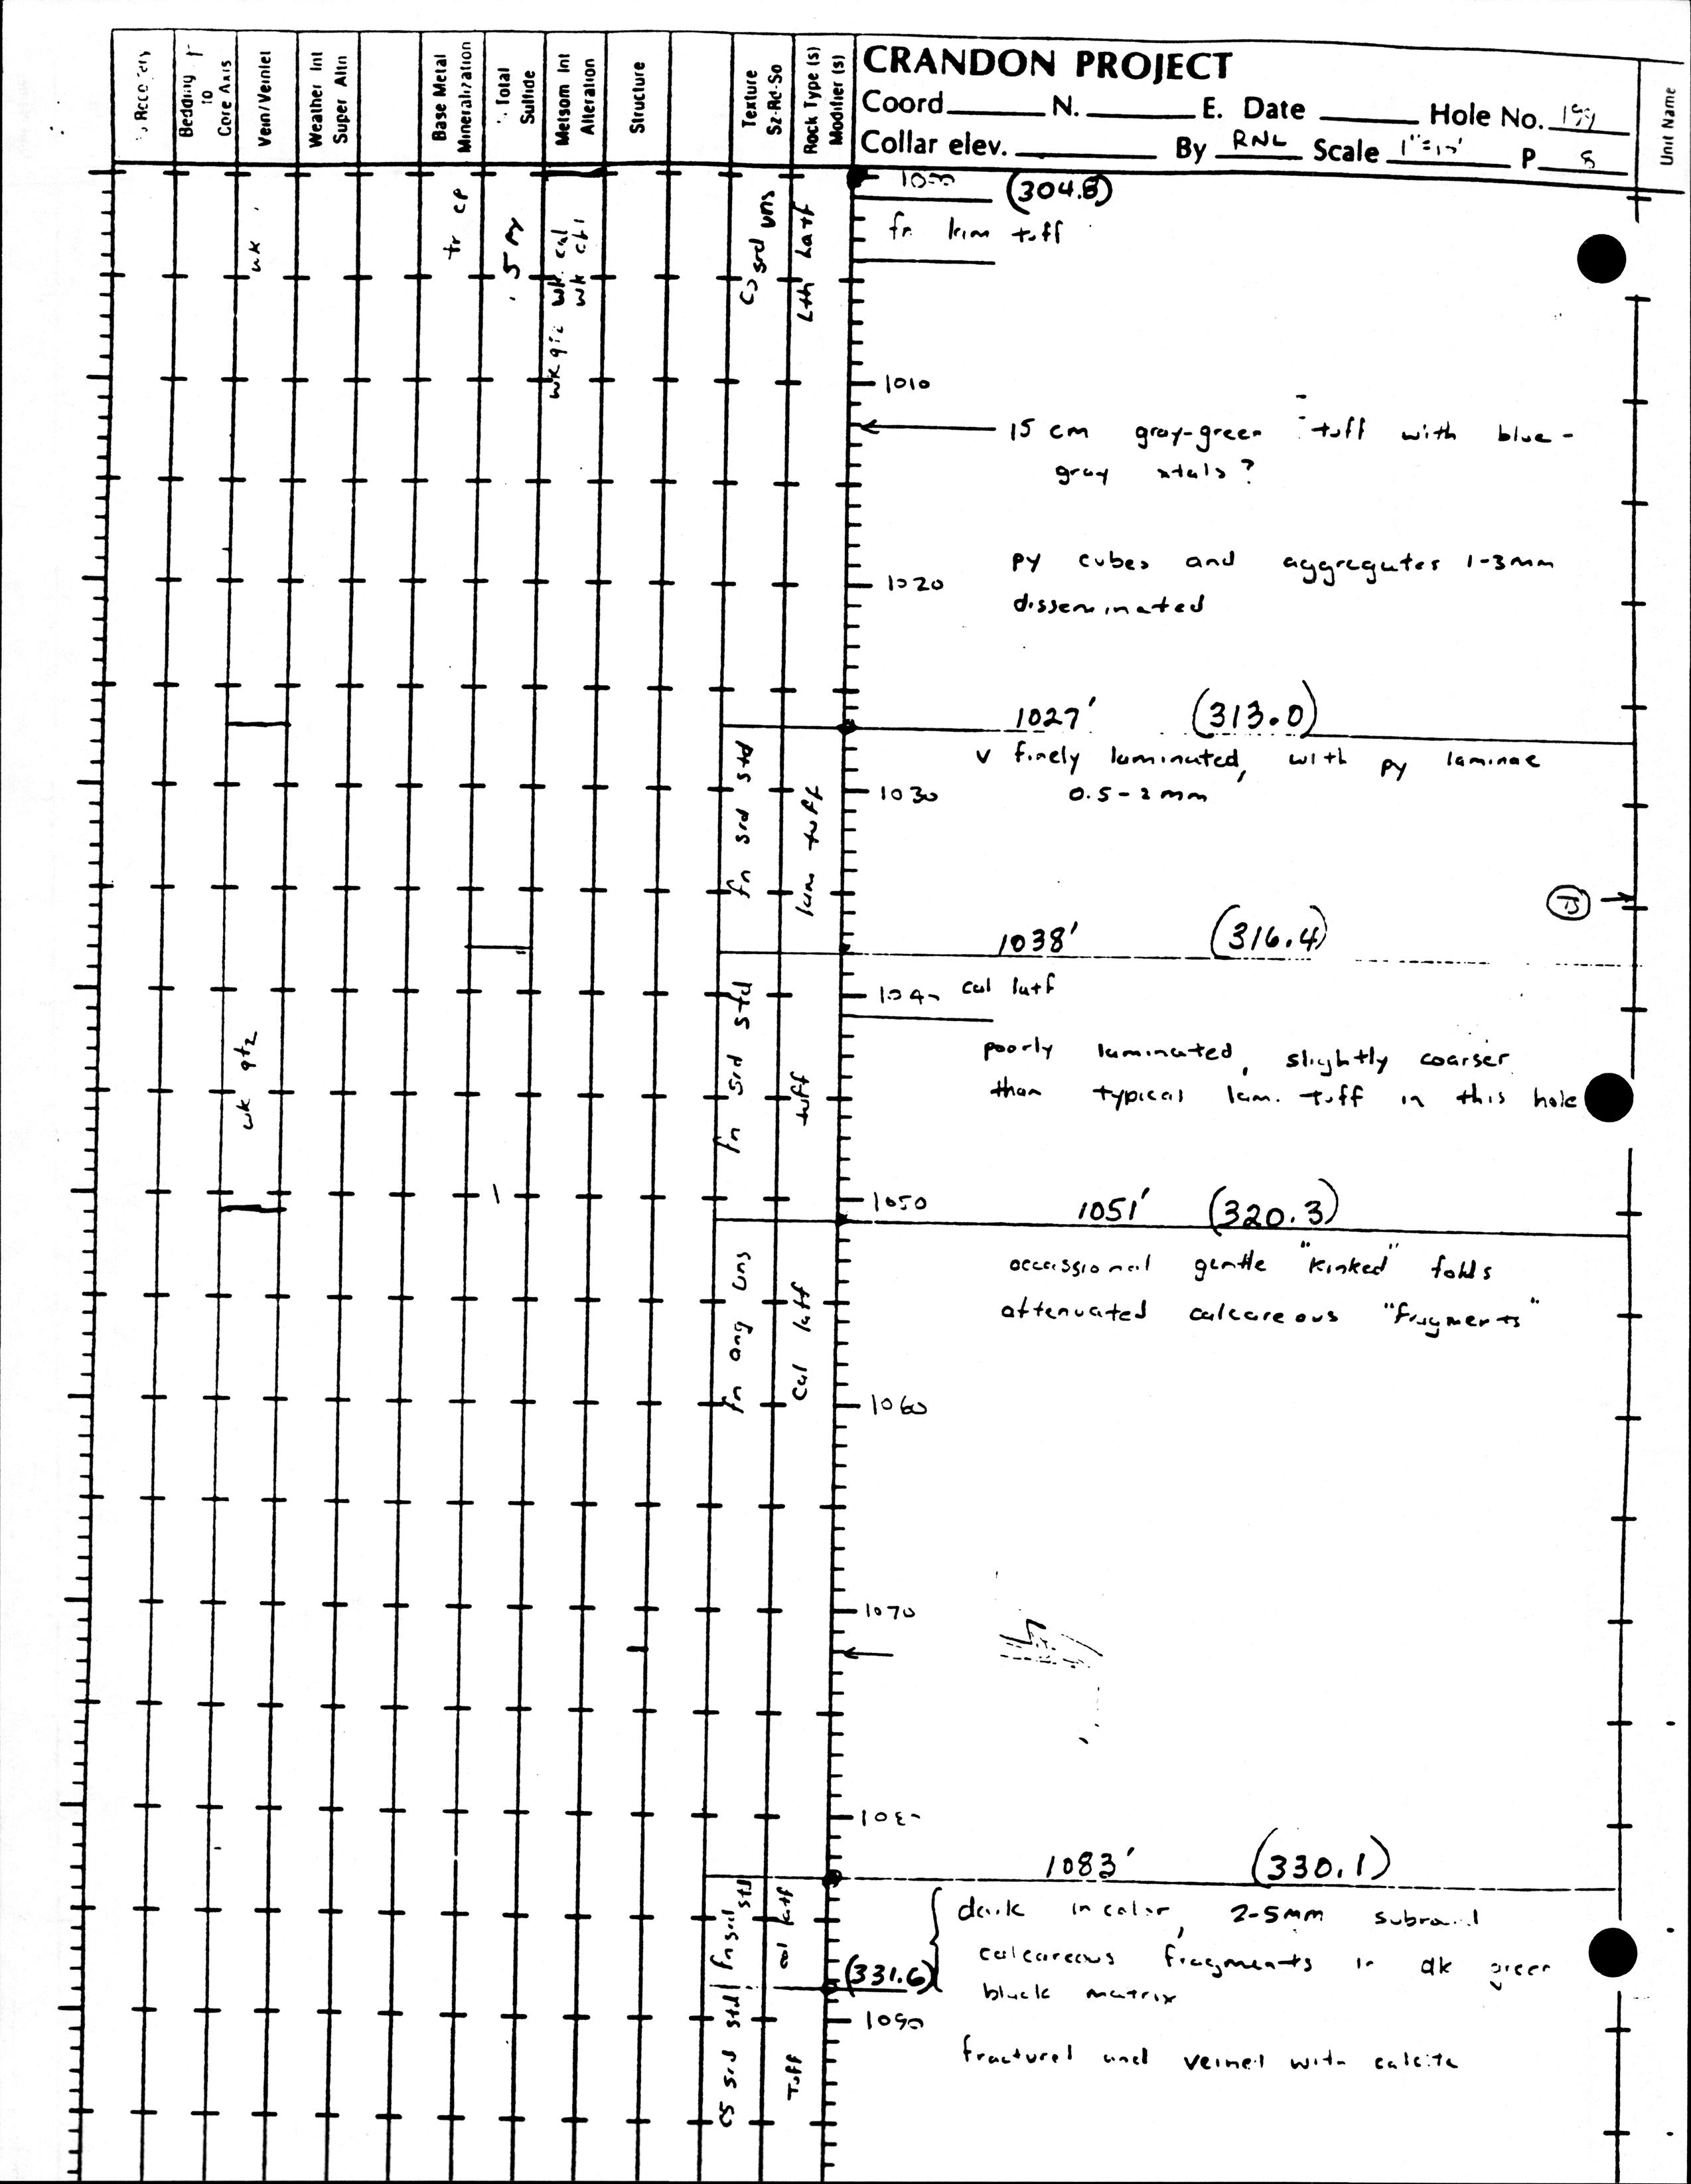 Bedding
to
Core Axis
Vein/Veinlet
Weather Int
Super Altn
Base Metal
Mineralization
% Total
Sulfide
Metsom Int
Alteration
Structure
Texture
Sz-Rd-So
Rock Type (s)
Modifier (s)
CRANDON PROJECT
Coord. N. E. Date Hole No. 199
Collar elev. By RNL Scale 1"=10' P 8
Unit Name
1000 (304.8)
fn lam tuff
wk
tr cp
.5 py
wk cal
wk chl
cs srd uns
Lth Latf
1010
15 cm gray-green tuff with blue-
gray xtals?
py cubes and aggregates 1-3mm
1020
disseminated
1027' (313.0)
v finely laminated, with py laminae
1030 0.5-2mm
fn srd std
lam tuff
1038' (316.4)
1040 cal latf
poorly laminated, slightly coarser
than typical lam. tuff in this hole
wk qtz
fn srd std
tuff
1
1050
1051' (320.3)
occassional gentle "kinked" folds
attenuated calcareous "fragments"
fn ang uns
cal latf
1060
1070
1080
1083' (330.1)
dark in color, 2-5mm subround
calcareous fragments in dk green
black matrix
fn srd std
cal latf
(331.6)
1090
fractured and veined with calcite
cs srd std
Tuff